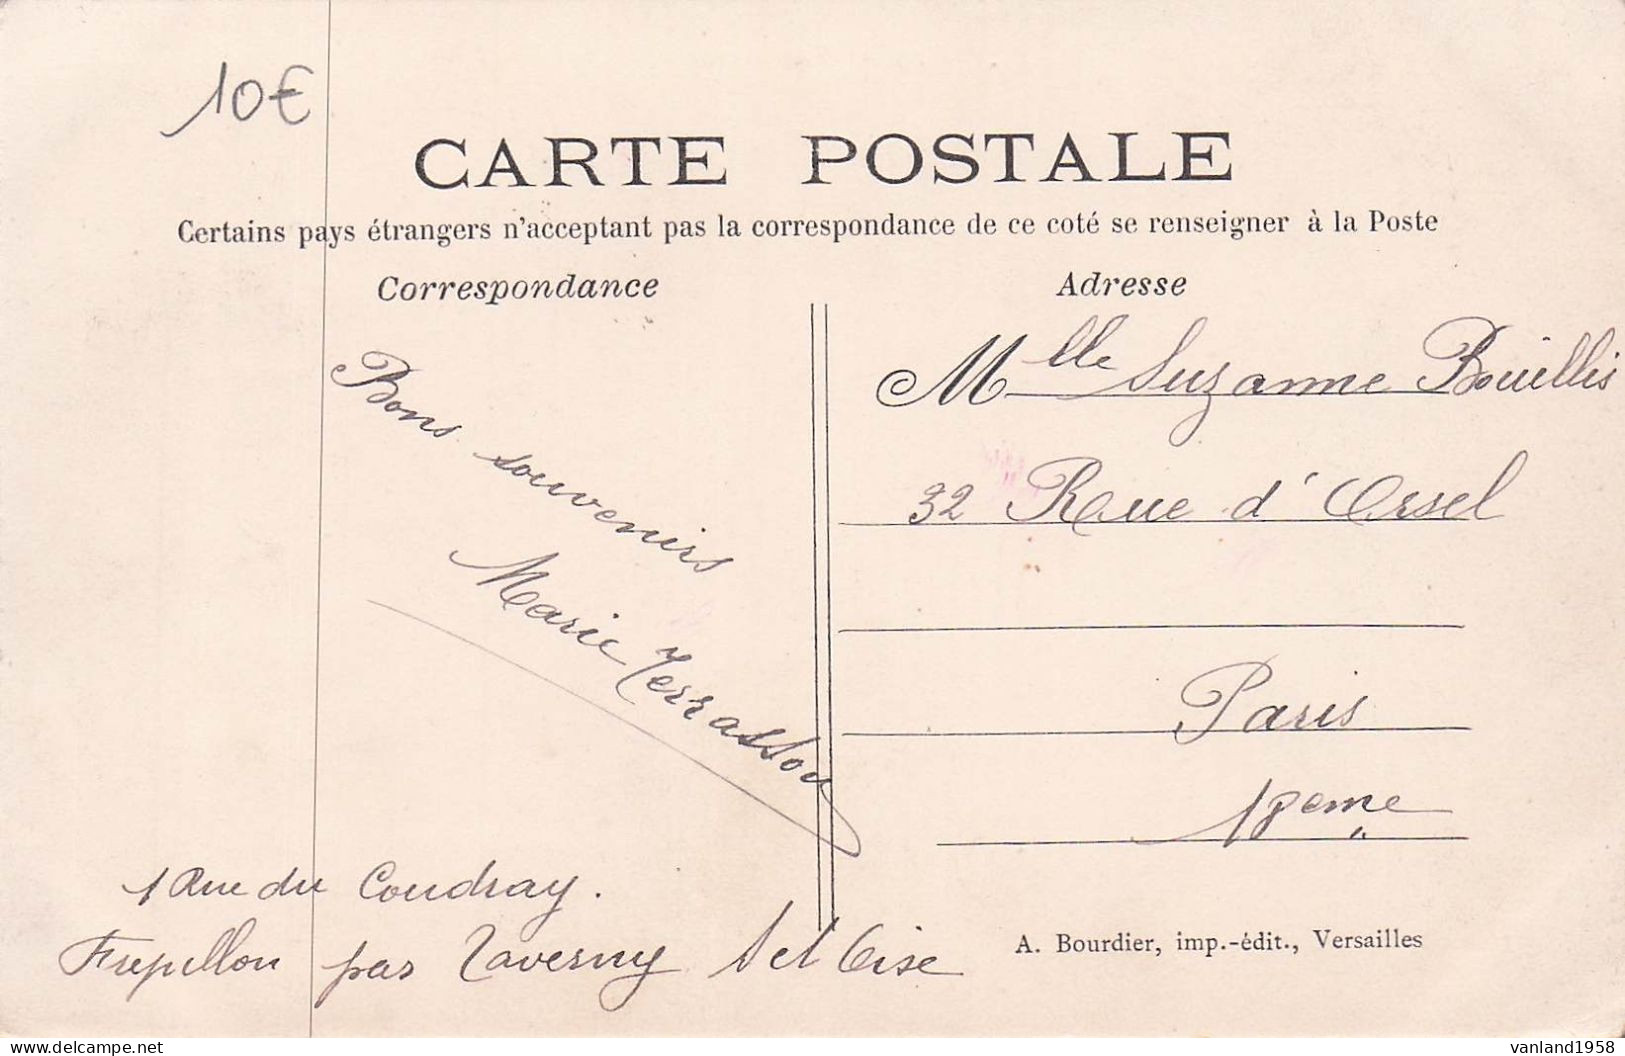 10€
CARTE POSTALE
Certains pays étrangers n'acceptant pas la correspondance de ce coté se renseigner à la Poste
Correspondance
Adresse
Bons souvenirs
Marie Terrasson
Mlle Suzanne Bouillis
32 Rue d'Orsel
Paris
18eme
1 Rue du Coudray.
Frépillon par Taverny S et Oise
A. Bourdier, imp.-édit., Versailles
vanland1958